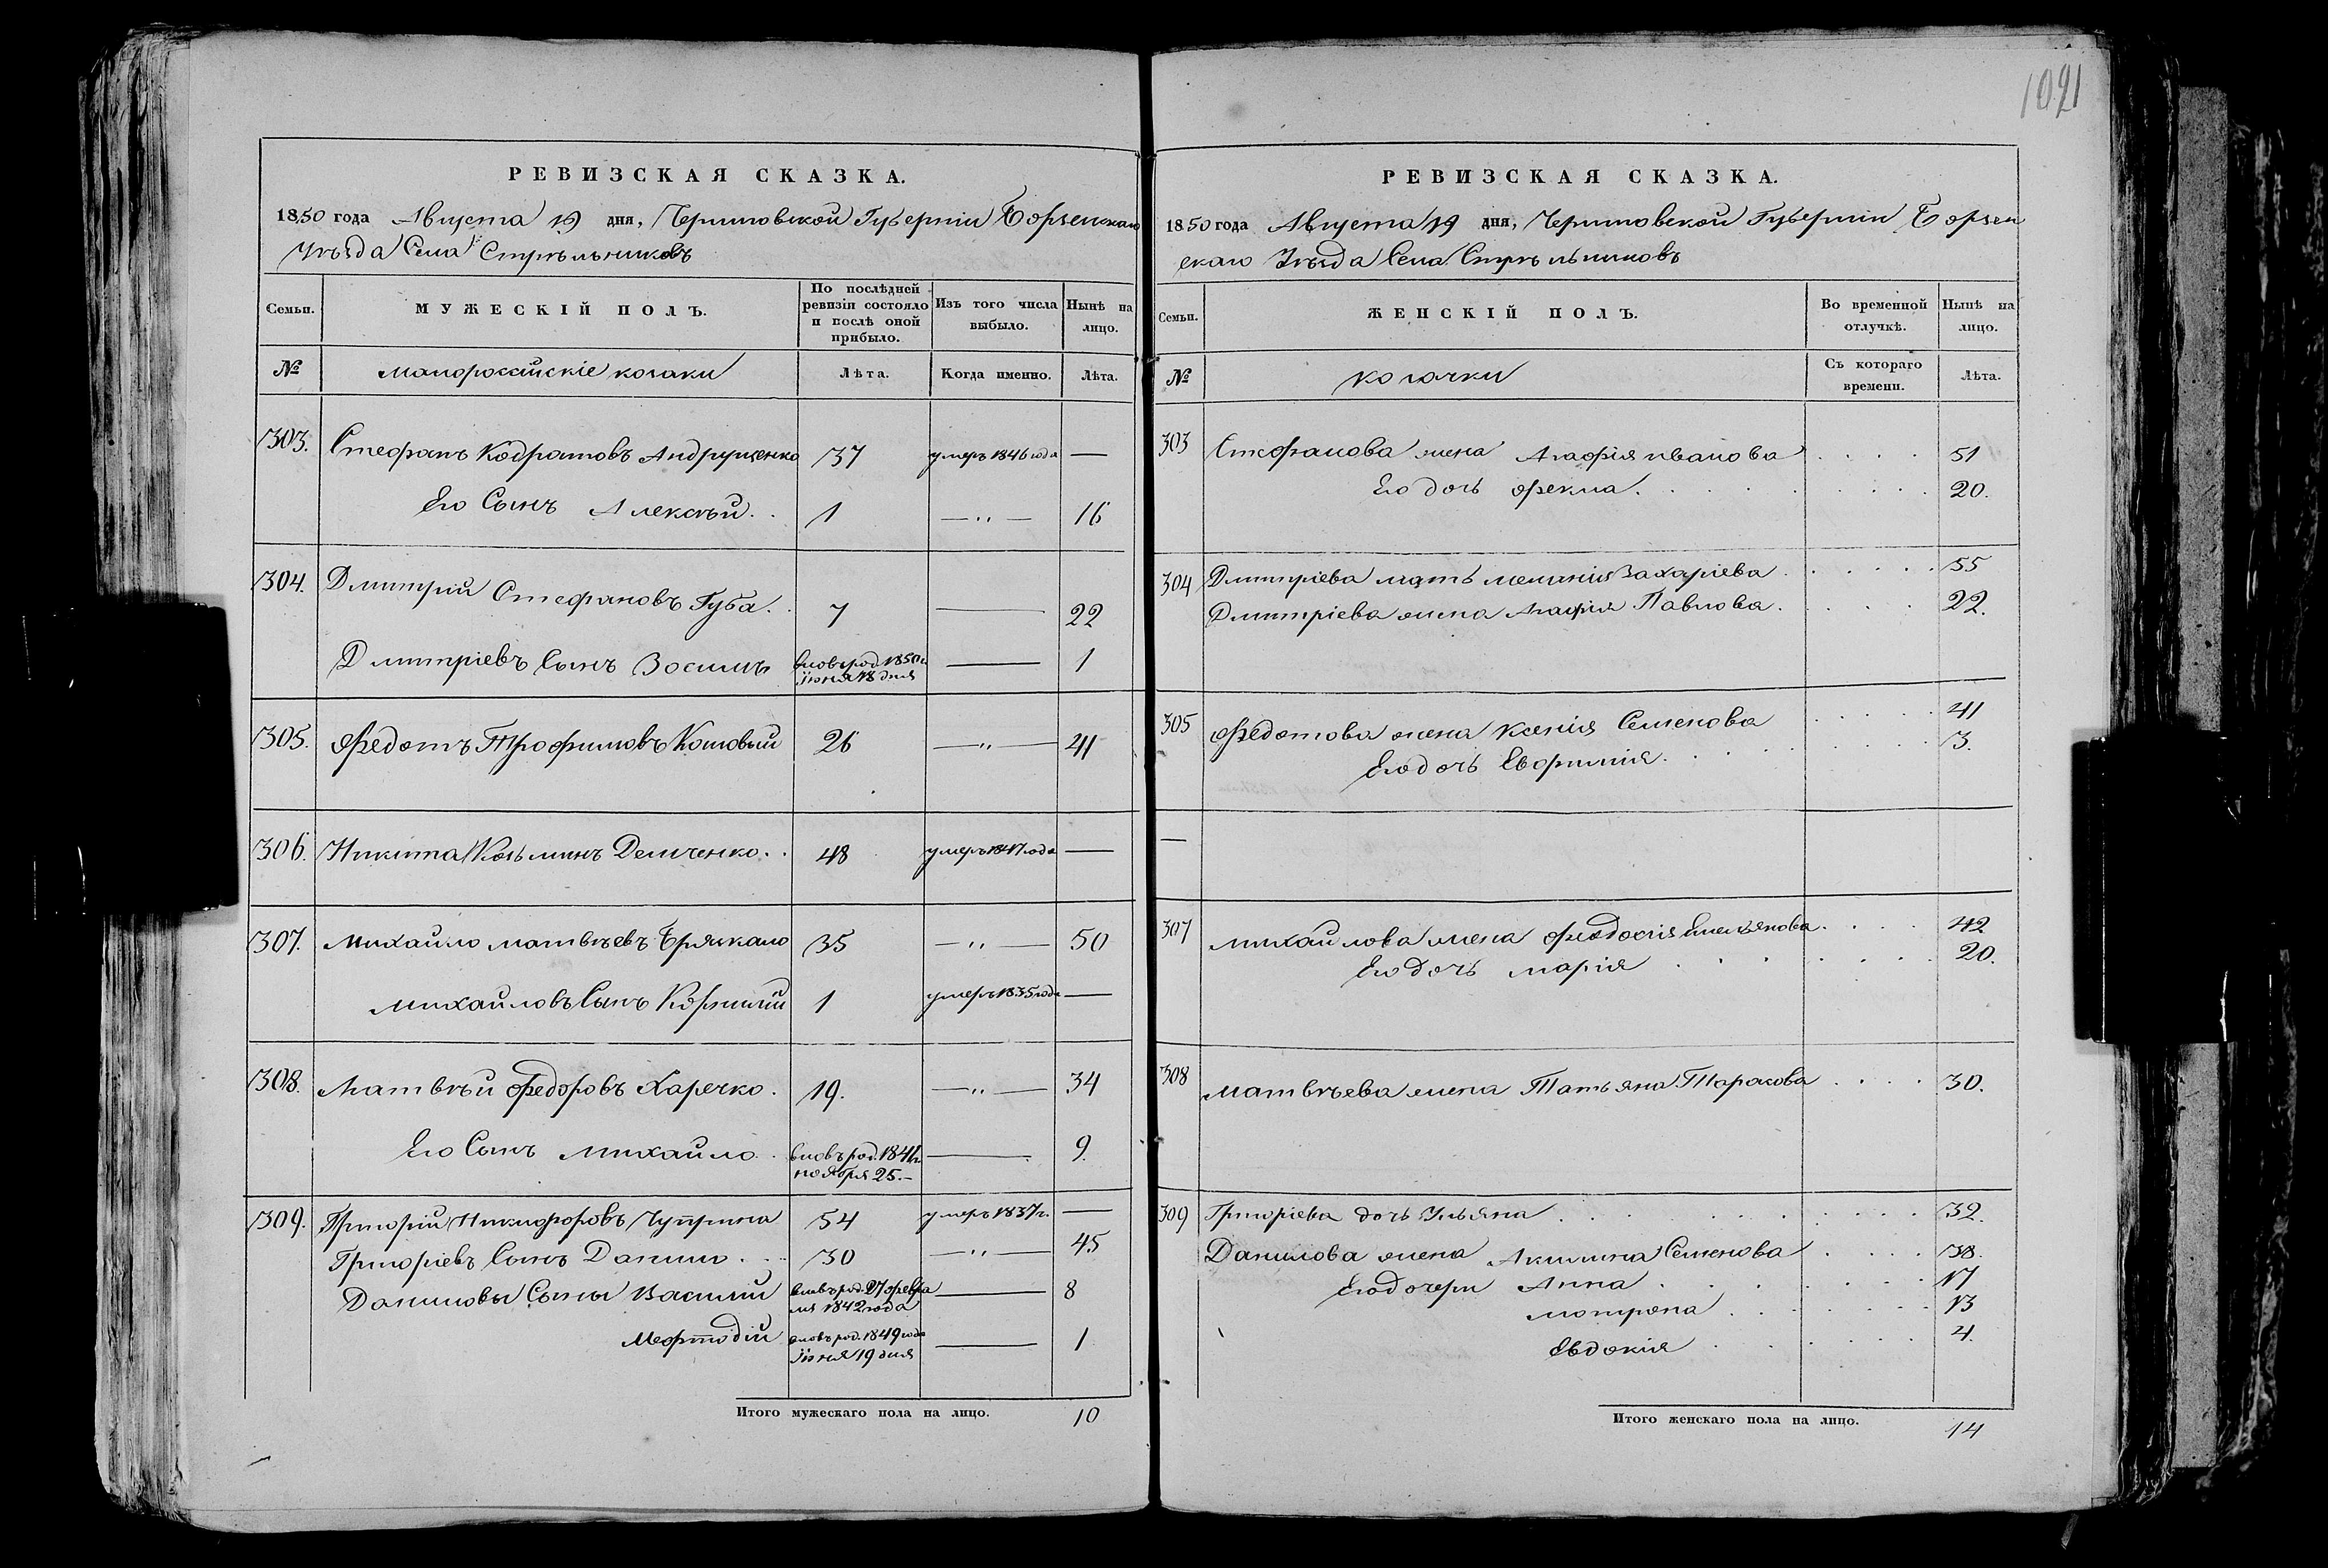 1021
РЕВИЗСКАЯ СКАЗКА.
1850 года Августа 19 дня, Черниговской Губерніи Борзенскаго
Уѣзда Села Стрѣльниковъ
Семьи.
МУЖЕСКІЙ ПОЛЪ.
По послѣдней
ревизіи состояло
и послѣ оной
прибыло.
Изъ того числа
выбыло.
Нынѣ на
лицо.
№
малороссійскіе козаки
Лѣта.
Когда именно.
Лѣта.
303. Стефанъ Кодратовъ Андрущенко 37 умеръ 1846 года —
Его Сынъ Алексѣй. . 1 — „ — 16
304. Дмитрій Стефановъ Губа. . 7 — 22
Дмитріевъ Сынъ Зосимъ вновь род. 1850 г. — 1
іюня 18 дня
305. Федотъ Трофимовъ Кошовый 26 — „ — 41
306. Никита Козьминъ Демченко. . 48 умеръ 1847 года —
307. Михайло Матвѣевъ Брязкало 35 — „ — 50
Михайловъ Сынъ Корнилій 1 умеръ 1835 года —
308. Матвѣй Федоровъ Харечко. 19. — „ — 34
Его Сынъ Михайло. . вновь род. 1841 г. — 9.
ноября 25. —
309. Григорій Никифоровъ Чуприна 54 умеръ 1837 г. —
Григоріевъ Сынъ Данило . . . 30 — „ — 45
Даниловы Сыны Василій вновь род. 27 февра — 8
ля 1842 года
Мефтодій вновь род. 1849 года — 1
іюня 19 дня
Итого мужескаго пола на лицо. 10
РЕВИЗСКАЯ СКАЗКА.
1850 года Августа 19 дня, Черниговской Губерніи Борзен
скаго Уѣзда Села Стрѣльниковъ
Семьи.
ЖЕНСКІЙ ПОЛЪ.
Во временной
отлучкѣ.
Нынѣ на
лицо.
№
козачки
Съ котораго
времени.
Лѣта.
303 Стефанова жена Агафія Иванова . . . . 51
Его дочь Фекла. . . . . . . . 20.
304 Дмитріева мать Меланія Захаріева . . . . . 55
Дмитріева жена Агафія Павлова . . . . 22.
305 Федотова жена Ксенія Семенова . . . . . 41
Его дочь Евфимія. . . . . . . 3.
—
307 Михайлова жена Феодосія Емельянова. . . . 42
Его дочь Марія . . . . . . . 20.
308 Матвѣева жена Татьяна Тарасова . . . . 30.
309 Григоріева дочь Ульяна . . . . . . . . . 32.
Данилова жена Акилина Семенова . . . . 38.
Его дочери Анна . . . . . . . 17
Мотрена . . . . . . . 13
Евдокія . . . . . . 4.
Итого женскаго пола на лицо. 14